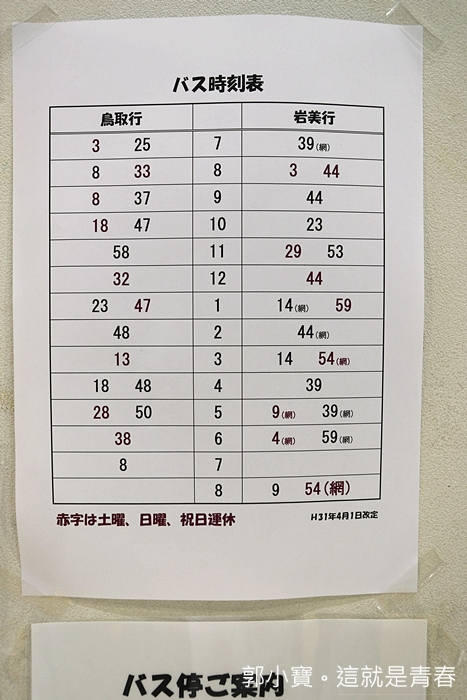 バス時刻表
鳥取行 岩美行
3 25 7 39(網)
8 33 8 3 44
8 37 9 44
18 47 10 23
58 11 29 53
32 12 44
23 47 1 14(網) 59
48 2 44(網)
13 3 14 54(網)
18 48 4 39
28 50 5 9(網) 39(網)
38 6 4(網) 59(網)
8 7
8 9 54(網)
赤字は土曜、日曜、祝日運休 H31年4月1日改定
バス停ご案内
郭小寶。這就是青春